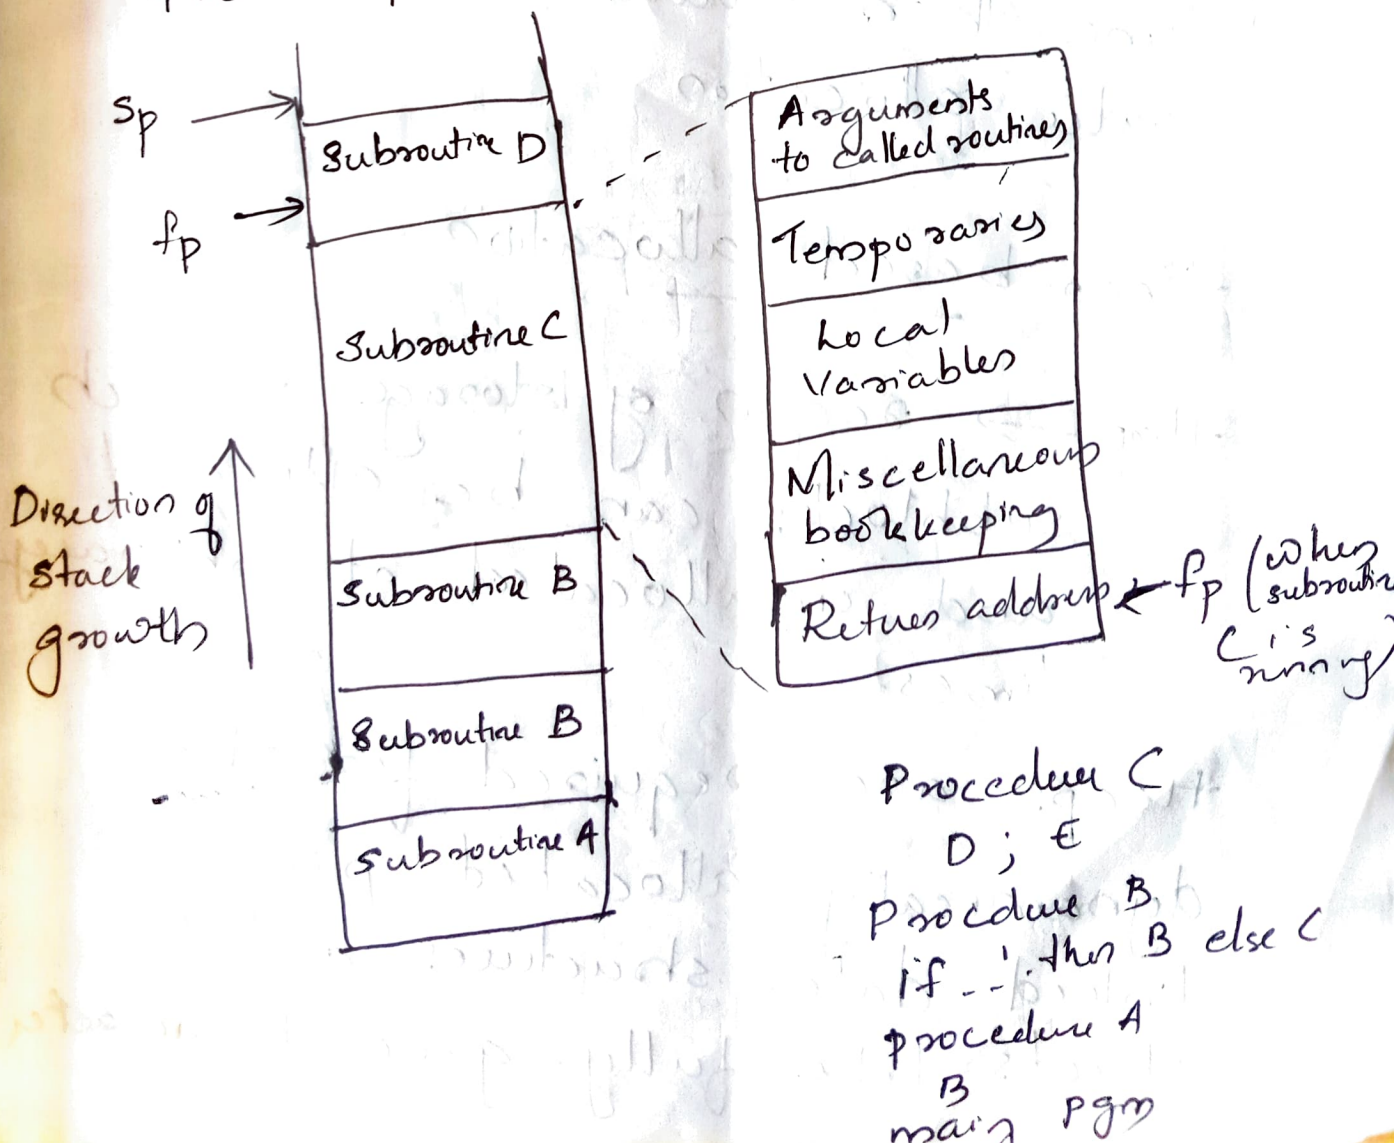 Sp
Subroutine D
fp
Subroutine C
Direction of
stack
growth
Subroutine B
Subroutine B
Subroutine A
Arguments
to called routines
Temporaries
Local
Variables
Miscellaneous
bookkeeping
Return address
fp (when
subroutine
C is
running)
Procedure C
D ; E
Procedure B
if --- then B else C
procedure A
B
main pgm